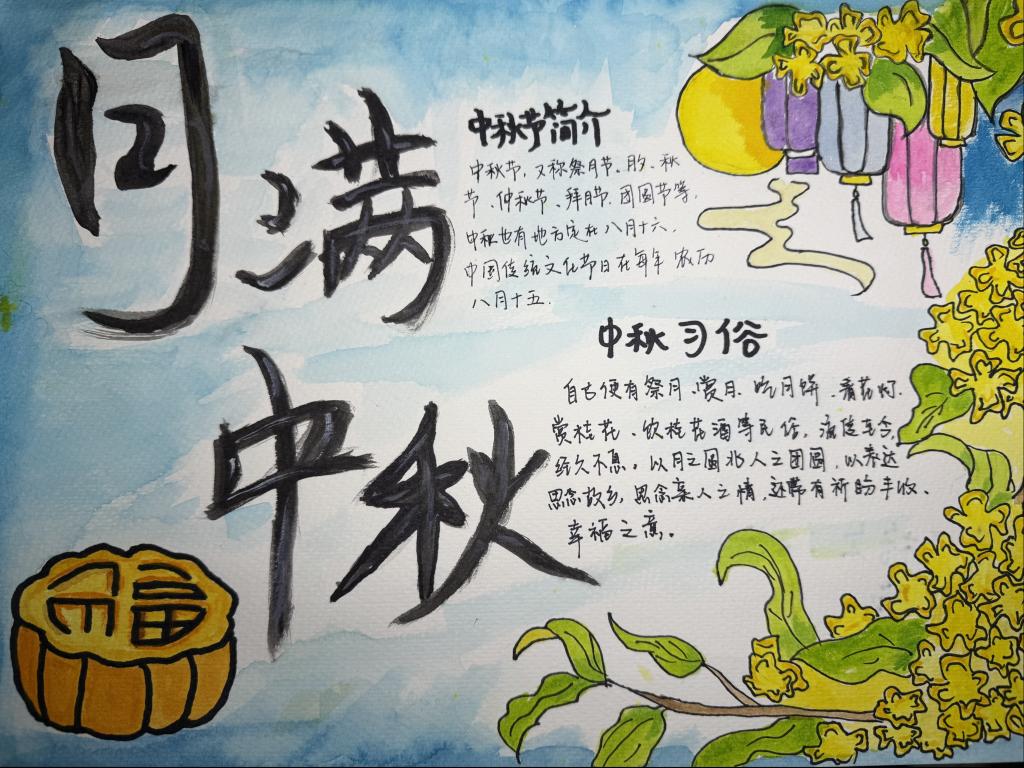 月满
中秋
中秋节简介
中秋节,又称祭月节、月夕、秋
节、仲秋节、拜月节、团圆节等,
中秋也有地方定在八月十六,
中国传统文化节日在每年农历
八月十五.
中秋习俗
自古便有祭月、赏月、吃月饼、看花灯、
赏桂花、饮桂花酒等民俗,流传至今,
经久不息。以月之圆兆人之团圆,以表达
思念故乡,思念亲人之情,还带有祈盼丰收、
幸福之意。
福